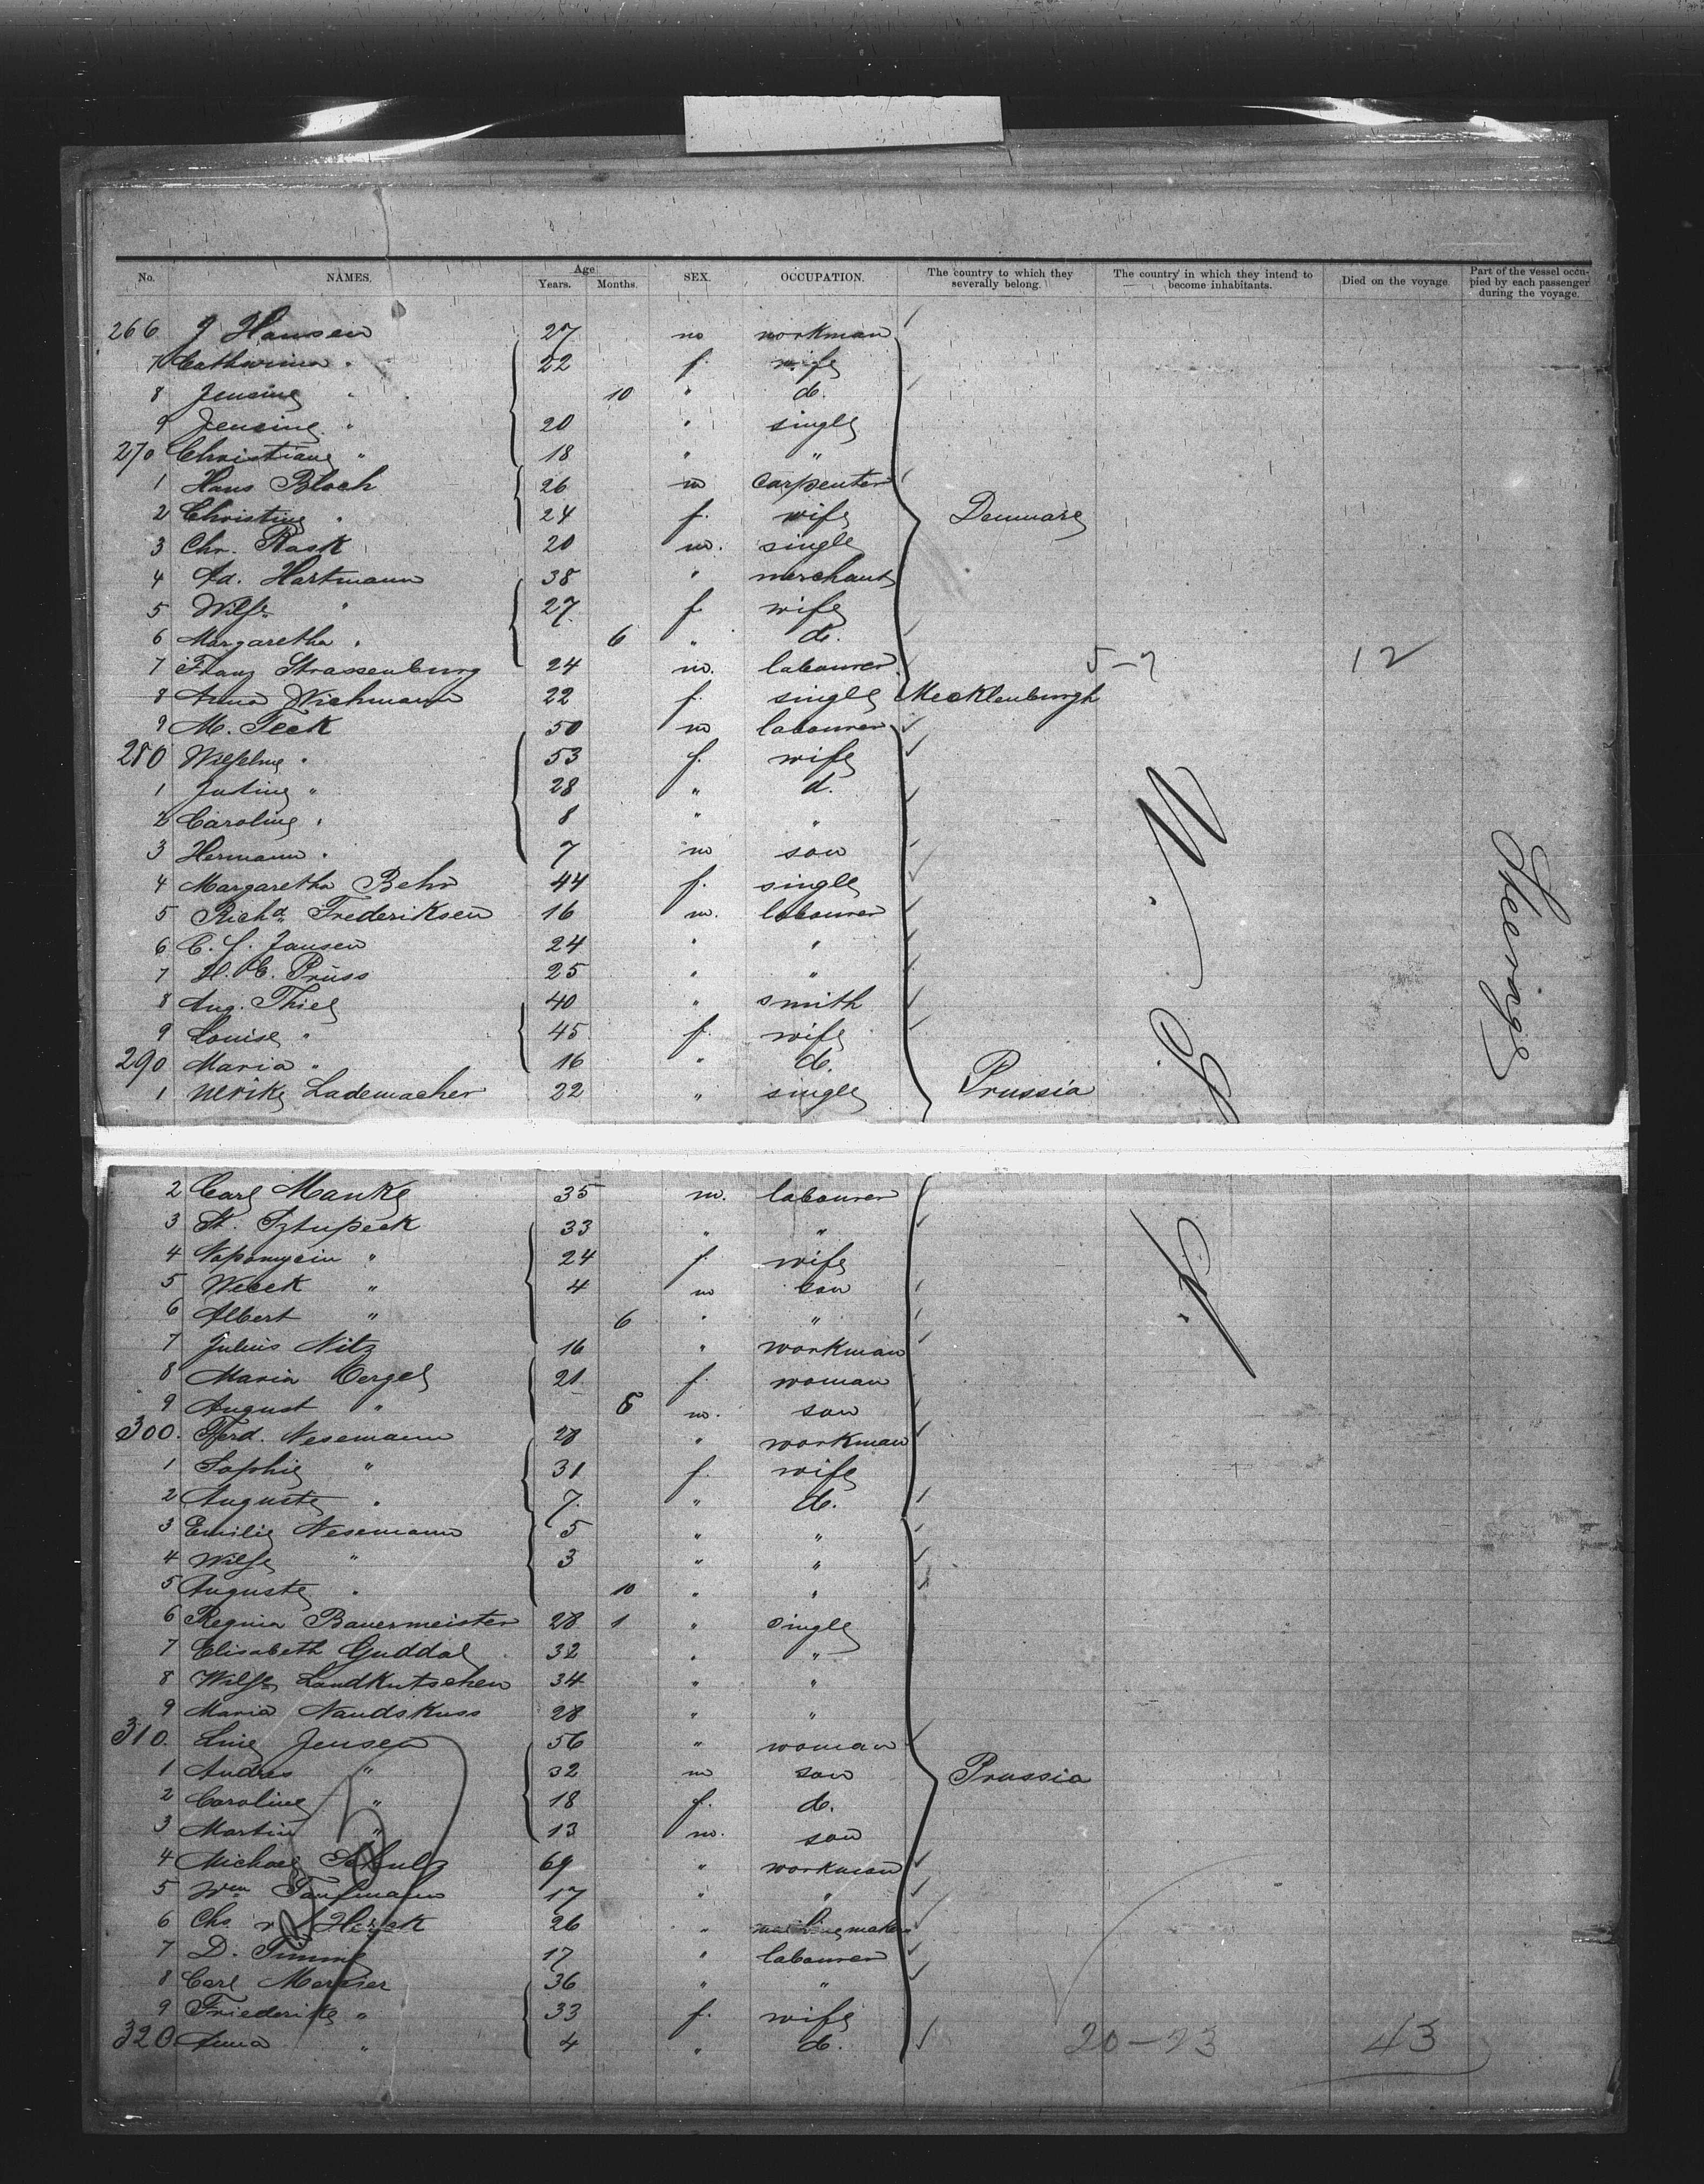 No. NAMES. Age Years. Months. SEX. OCCUPATION. The country to which they severally belong. The country in which they intend to become inhabitants. Died on the voyage Part of the vessel occupied by each passenger during the voyage.
266 J Hansen 27 m workman
7 Catharina " 22 f. wife
8 Jensine " 10 " d.
9 Jensine " 20 " single
270 Christiane " 18 " "
1 Hans Bloch 26 m carpenter
2 Christine " 24 f. wife Denmark
3 Chr. Rask 20 m. single
4 Ad. Hartmann 38 " merchant
5 Wilh. " 27 f. wife
6 Margaretha " 6 " d.
7 Franz Strassenburg 24 m. labourer 5-7 12
8 Anna Wichmann 22 f. single Mecklenburgh
9 M. Teck 50 m labourer
280 Wilhelme " 53 f. wife
1 Justine " 28 " d.
2 Caroline " 8 " "
3 Hermann " 7 m son
4 Margaretha Behr 44 f. single
5 Richd. Frederiksen 16 m. labourer
6 C. J. Jansen 24 " "
7 H. C. Prüss 25 " "
8 Aug. Thiel 40 " smith
9 Louise " 45 f. wife
290 Maria " 16 " d.
1 Ulrike Lademacher 22 " single Prussia
U. S. A.
Steerage
2 Carl Manke 35 m. labourer
3 St. Sztupeck 33 " "
4 " 24 f. wife
5 " 4 m son
6 Albert " 6 " "
7 Julius Nitz 16 " workman
8 Maria Oergel 21 f. woman
9 August " 8 m. son
300. Ferd. Nesemann 28 " workman
1 Sophie " 31 f. wife
2 Auguste " 7. " d.
3 Emilie Nesemann 5 " "
4 Wilhe " 3 " "
5 Auguste " 10 " "
6 Regina Bauermeister 28 1 " single
7 Elisabeth Guddal 32 " "
8 Wilhe Landkutschen 34 " "
9 Maria Naudskuss 28 " "
310. Line Jensen 56 " woman
1 Andres " 32 m son Prussia
2 Caroline " 18 f. d.
3 Martin " 13 m. son
4 Michael Schulz 69 " workman
5 Wm Taufmann 17 " "
6 Chs. 26 "
7 D. Timme 17 " labourer
8 Carl 36 " "
9 Friederike " 33 f. wife
320. Anna " 4 " d. 20-23 43